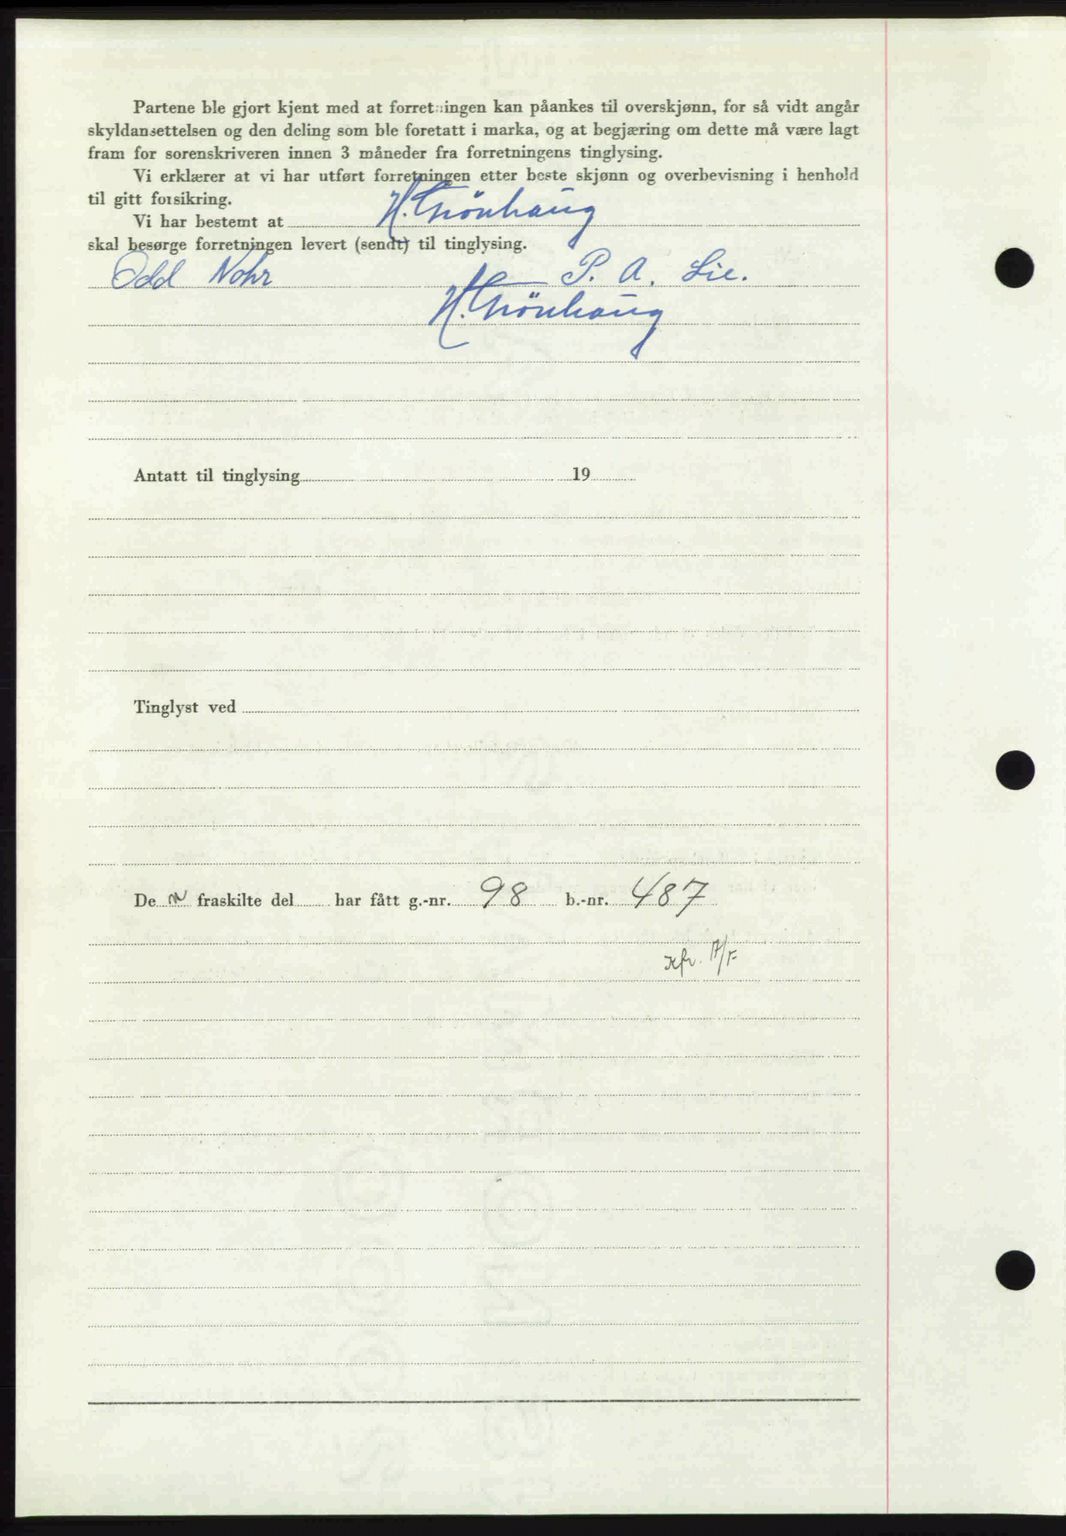 Partene ble gjort kjent med at forretningen kan påankes til overskjønn, for så vidt angår
skyldansettelsen og den deling som ble foretatt i marka, og at begjæring om dette må være lagt
fram for sorenskriveren innen 3 måneder fra forretningens tinglysing.
Vi erklærer at vi har utført forretningen etter beste skjønn og overbevisning i henhold
til gitt forsikring.
Vi har bestemt at H. Grönhaug
skal besørge forretningen levert (sendt) til tinglysing.
Odd Nohr P. A. Lie.
H. Grönhaug
Antatt til tinglysing 19
Tinglyst ved
De n fraskilte del har fått g.-nr. 98 b.-nr. 487
Kfr.